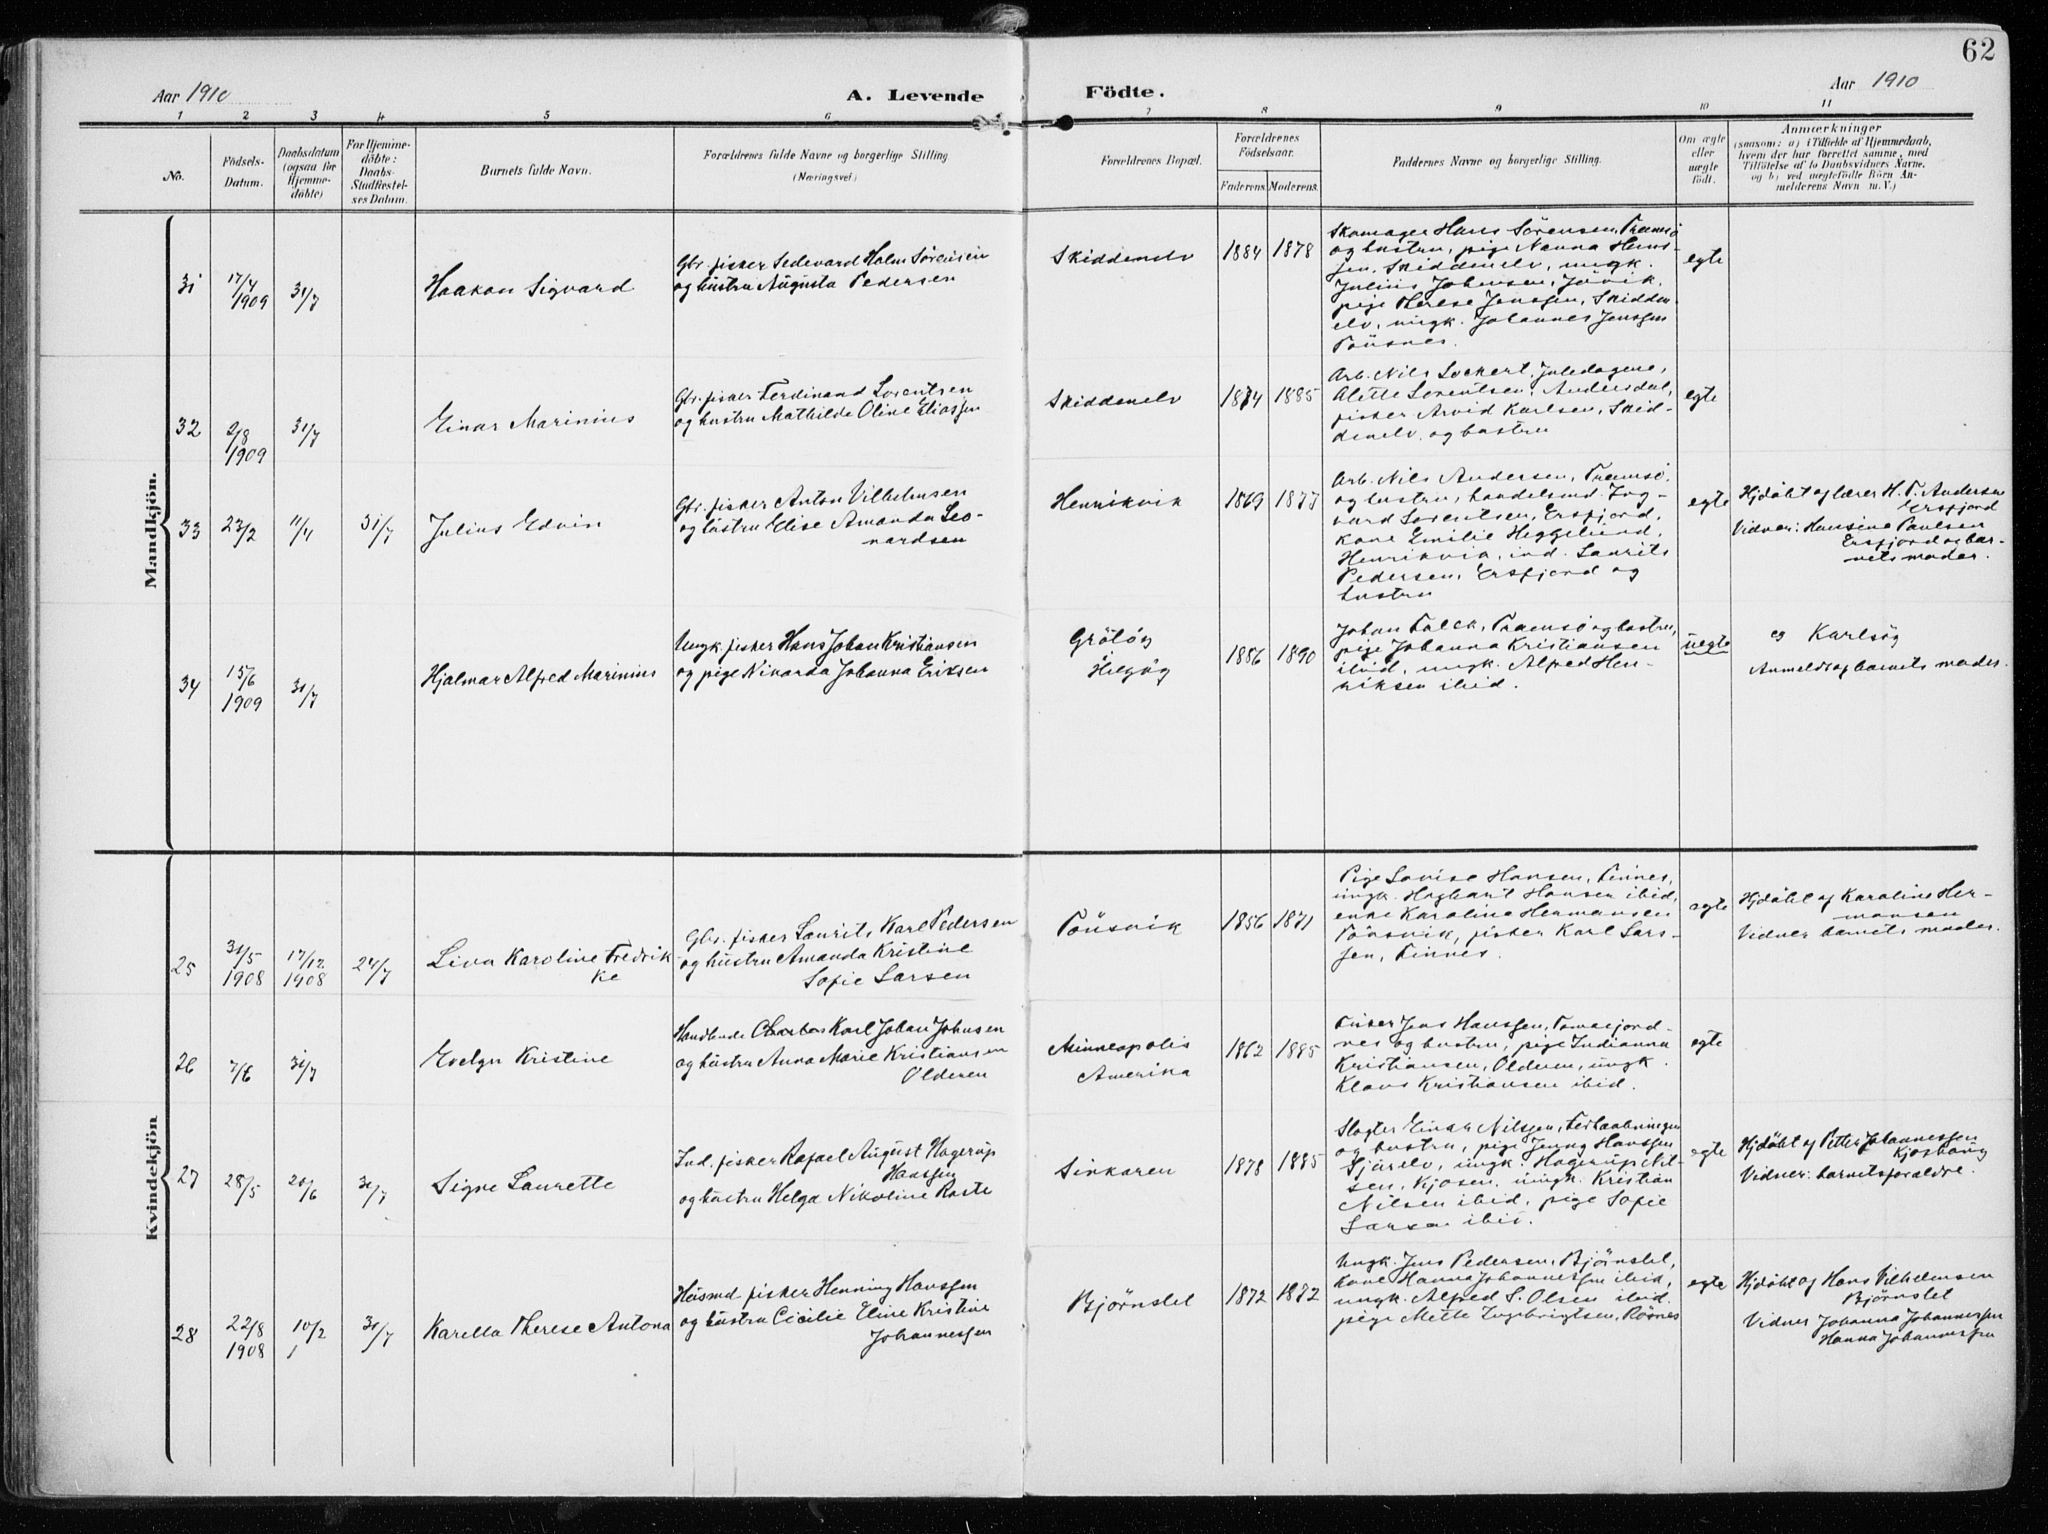 62
Aar 1910
A. Levende
Födte.
Aar 1910
1 2 3 4 5 6 7 8 9 10 11
No.
Födsels-
Datum.
Daabsdatum
(ogsaa for
Hjemme-
döbte)
For Hjemme-
döbte:
Daabs-
Stadfæstel-
ses Datum.
Barnets fulde Navn.
Forældrenes fulde Navne og borgerlige Stilling
(Næringsvei)
Forældrenes Bopæl.
Forældrenes
Födselsaar.
Faderens. Moderens.
Faddernes Navne og borgerlige Stilling.
Om ægte
eller
uægte
födt.
Anmærkninger
(saasom: a) i Tilfælde af Hjemmedaab,
hvem der har forrettet samme, med
Tilföielse af to Daabsvidners Navne.
og b) ved uægtefödte Börn An-
melderens Navn m. V.)
Mandkjön.
31
17/4
1909
31/7
Haakon Sigvard
Gbr. fisker Sedevard Holm Sørensen
og hustru Augusta Pedersen
Skiddenelv
1884
1878
Skomager Hans Sörensen, Tromsö
og hustru, pige Nanna Hans-
sen, Skiddenelv, ungk.
Julius Johansen, Jövik,
pige Therese Jenssen, Skidden
elv, ungk. Johannes Jenssen
Tönsnes.
egte
32
2/8
1909
31/7
Einar Marinius
Gbr. fisker Ferdinand Lorentsen
og hustru Mathilde Oline Eliassen
Skiddenelv
1874
1885
Arb. Nils Lockert,
Alette Lorentsen, Andersdal,
fisker Arvid Karlsen, Skid-
denelv, og hustru
egte
33
27/2
11/4
31/7
Julius Edvin
Gbr. fisker Anton Vilhelmsen
og hustru Elise Amanda Leo-
nardsen
Henrikvik
1869
1877
Arb. Nils Andersen, Tromsö
og hustru, handelsmd. Ing-
vard Lorentsen, Ersfjord,
kone Emilie Heggelund,
Henrikvik, ind. Laurits
Pedersen, Ersfjord og
hustru
egte
Hjdöbt af lærer H. P. Andersen
Ersfjord
Vidner: Hansine Paulsen
Ersfjord og bar-
nets moder.
34
15/6
1909
31/7
Hjalmar Alfred Marinius
Ungk. fisker Hans Johan Kristiansen
og pige Ninarda Johanna Eriksen
Grötöy
Helgöy
1886
1890
Johan Falck, Tromsö og hustru,
pige Johanna Kristiansen
ibid, ungk. Alfred Hen-
riksen ibid.
uegte
Karlsöy
Anmeldt af barnets moder.
Kvindekjön
25
31/5
1908
17/12
1908
24/7
Liva Karoline Fredrik-
ke
Gbr. fisker Laurits Karl Pedersen
og hustru Amanda Kristine
Sofie Larsen
Tönsvik
1856
1871
Pige Lovise Hansen, Finnes,
ungk. Hagbart Hansen ibid,
enke Karoline Hermansen
Tönsvik, fisker Karl Lars-
sen, Finnes.
egte
Hjdöbt af Karoline Her-
mansen
Vidner barnets moder.
26
7/6
31/7
Evelyn Kristine
Karl Johan Johnsen
og hustru Anna Marie Kristiansen
Olderen
Minneapolis
Amerika
1862
1885
Fisker Jens Hanssen, Tomasjord-
nes og hustru, pige Indianna
Kristiansen, Olderen, ungk.
Klaus Kristiansen ibid.
egte
27
28/5
20/6
31/7
Signe Laurette
Ind. fisker Rafael August Hagerup
Hanssen
og hustru Helga Nikoline Raste
Sinkaren
1878
1885
Slagter Einar Nilssen,
og hustru, pige Jenny Hanssen
Sjürelv, ungk. Hagerup Nil-
sen, Kjosen, ungk. Kristian
Nilsen ibid, pige Sofie
Larsen ibid.
egte
Hjdöbt af Petter Johannessen
Kjosbaug
Vidner: barnets forældre.
28
22/8
1908
10/2
31/7
Karella Therese Antona
Heismd. fisker Henning Hanssen
og hustru Cicilie Eline Kristine
Johannessen
Bjørnslet
1872
1872
Ungk. Jens Pedersen, Bjørnslet,
kone Hanna Johannessen ibid,
ungk. Alfred S. Olsen ibid.
pige Mette Ingebrigtsen, Røsnes
egte
Hjdöbt af Hans Vilhelmsen
Bjørnslet
Vidner Johanna Johannessen
Hanna Johannessen